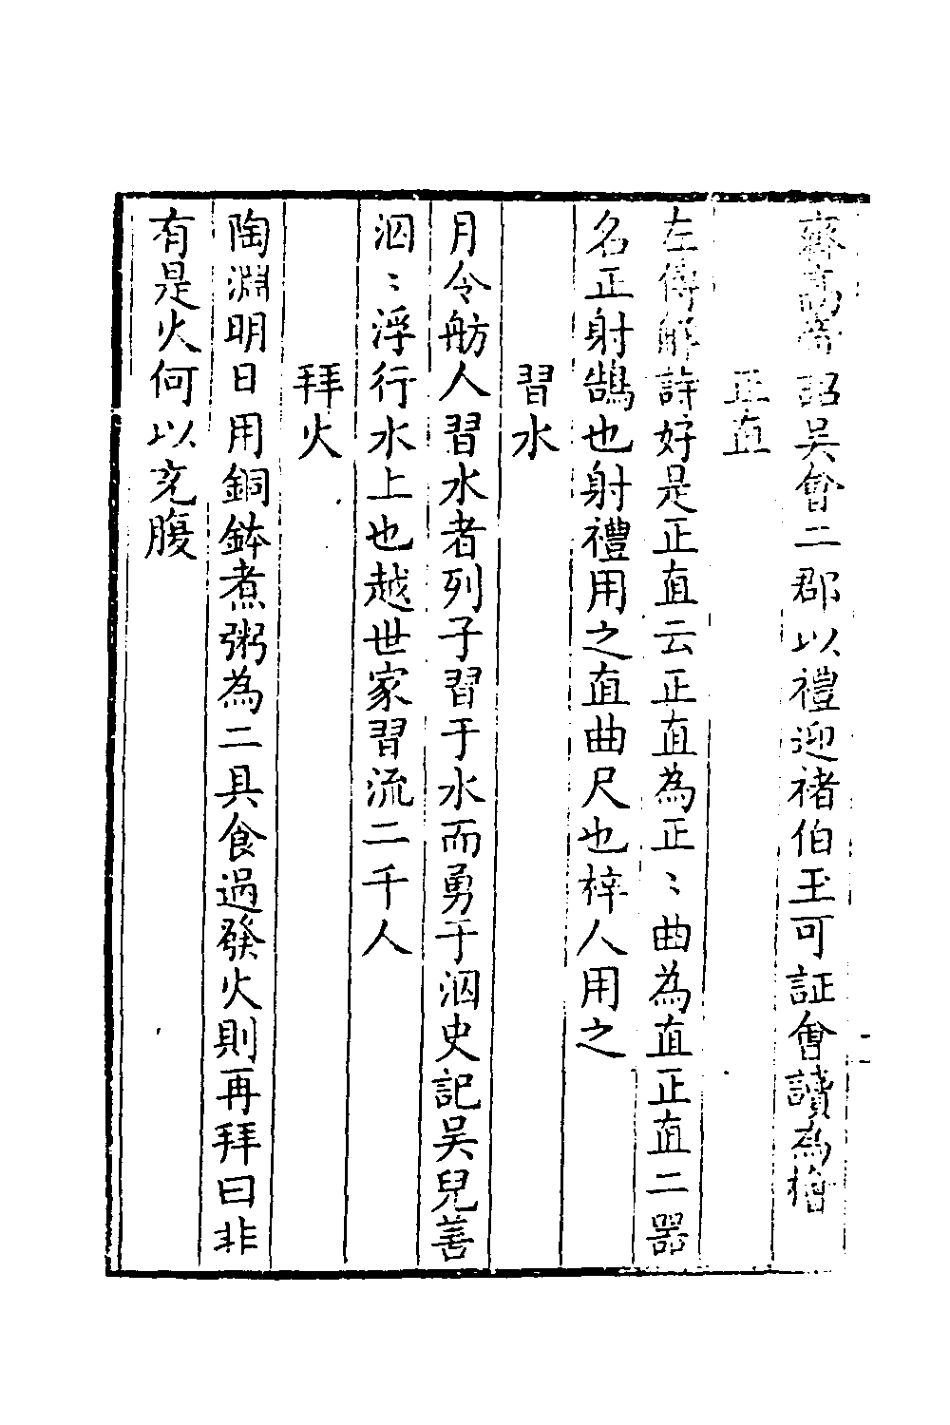 齊高帝詔吳會二郡以禮迎褚伯玉可証會讀為檜
正直
左傳解詩好是正直云正直為正〻曲為直正直二器
名正射鵠也射禮用之直曲尺也梓人用之
習水
月令舫人習水者列子習于水而勇于泅史記吳兒善
泅〻浮行水上也越世家習流二千人
拜火
陶淵明日用銅鉢煮粥為二具食過發火則再拜曰非
有是火何以充腹